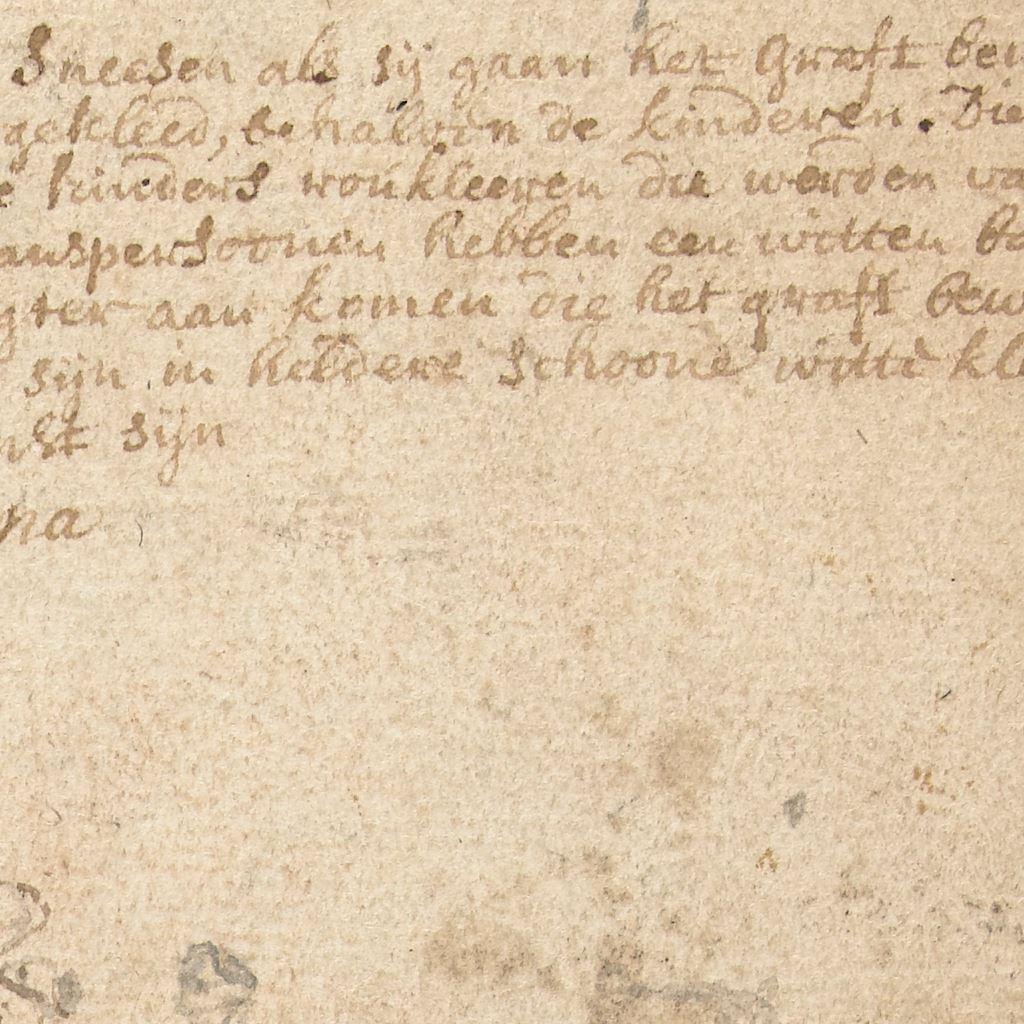 Sneesen als sij gaan het graft bew
gekleed, behalven de kinderen. Die
e kinders rouwkleeren die werden va
anspersoonen hebben een witten ba
gter aan komen die het graft bew
sijn in heldere schoone witte kle
sijn
na